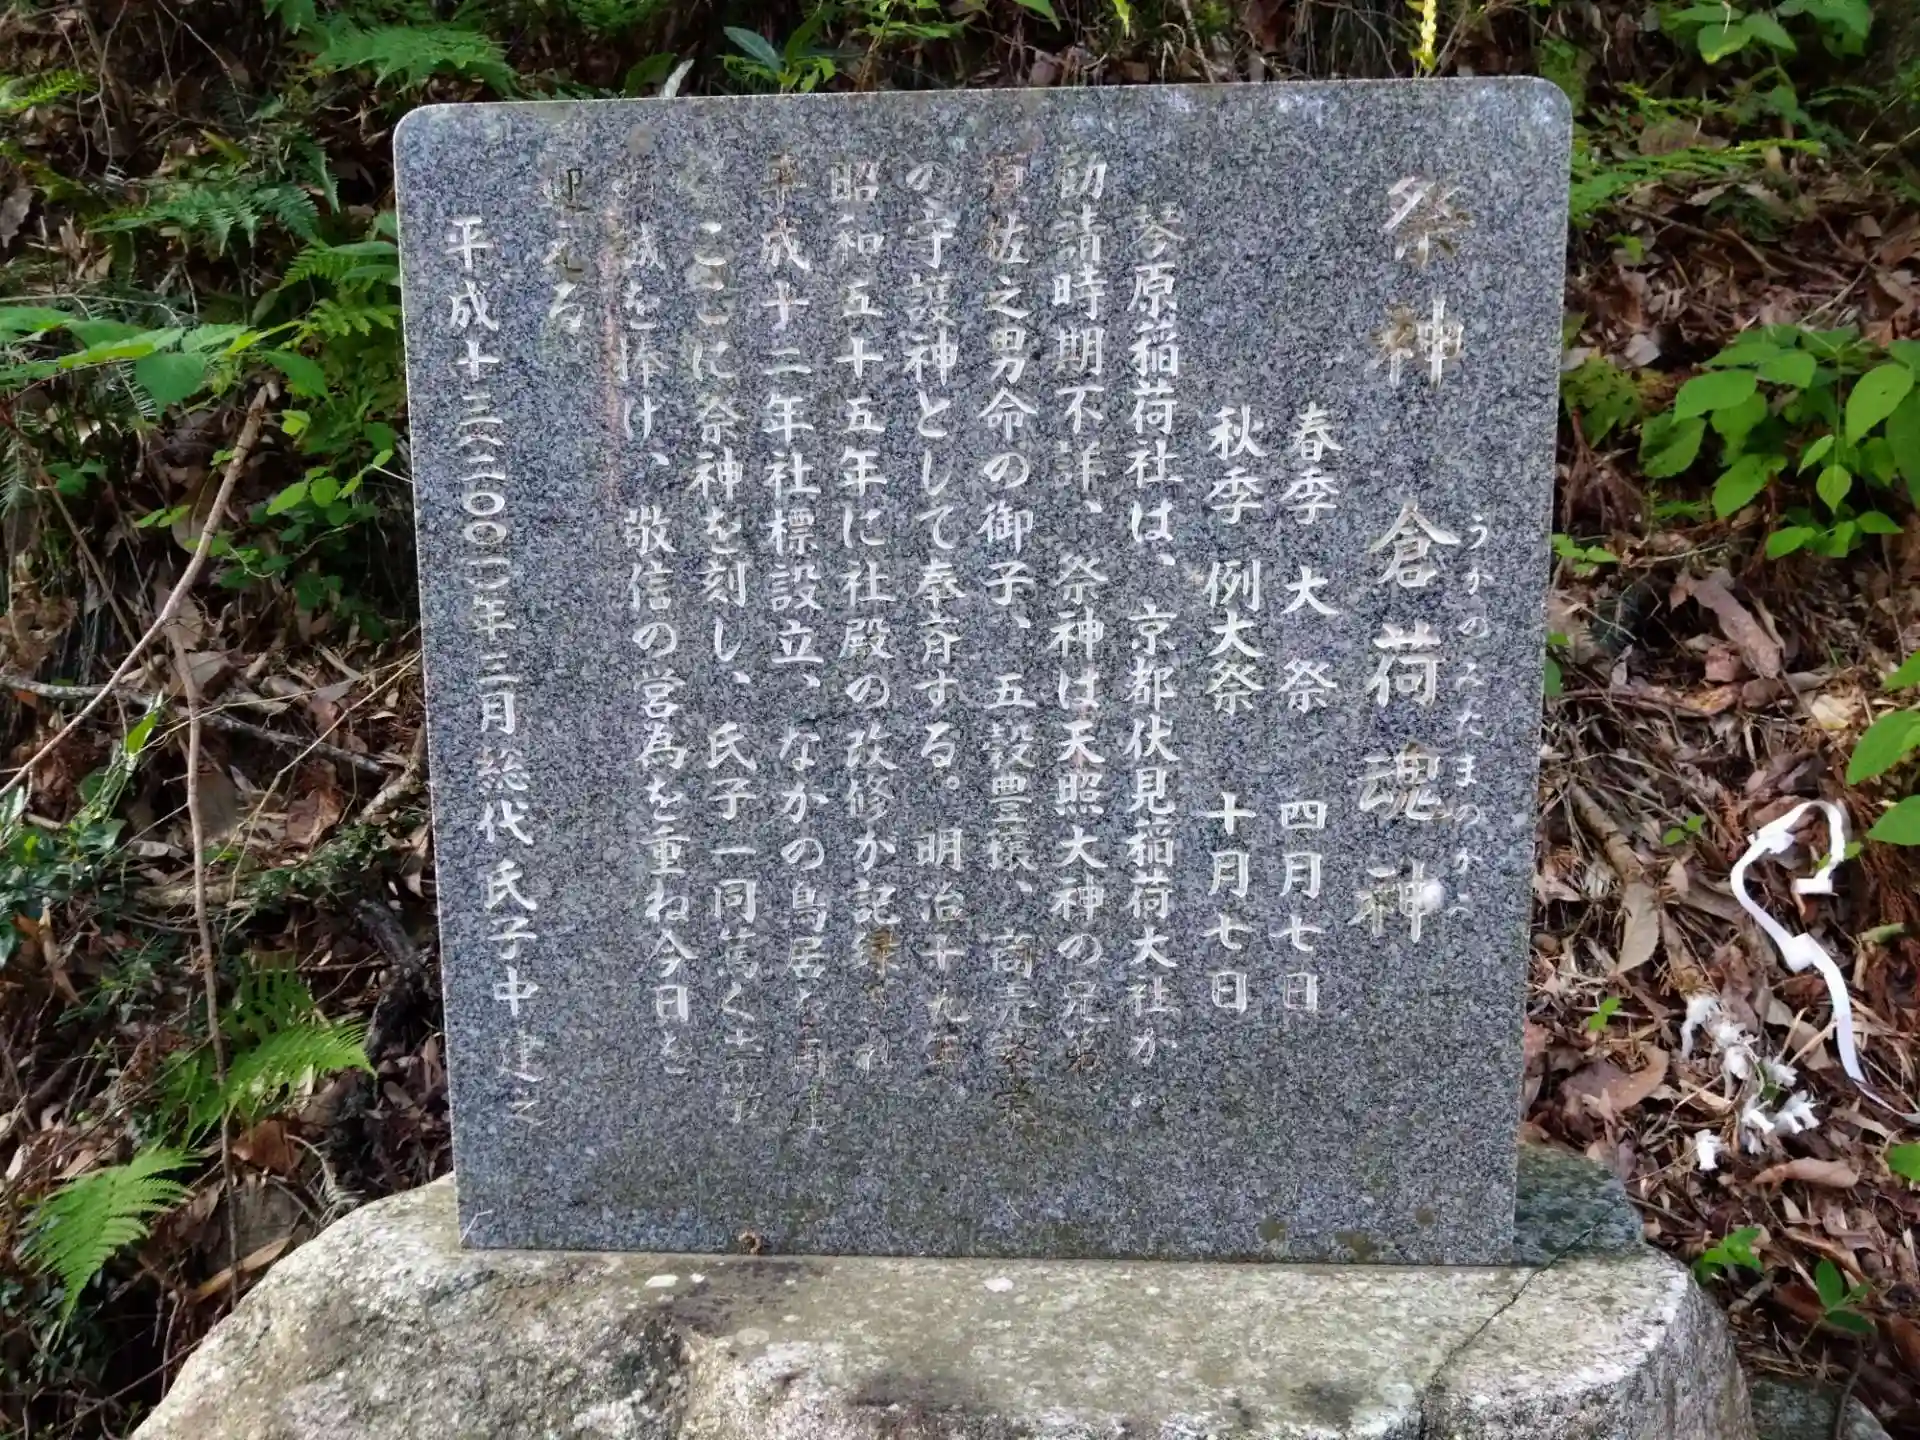 祭神 倉荷魂神
うかのみたまのかみ
春季大祭 四月七日
秋季例大祭 十月七日
琴原稲荷社は、京都伏見稲荷大社か
勧請時期不詳、祭神は天照大神の兄弟
須佐之男命の御子、五穀豊穣、商売繁栄
の守護神として奉斎する。明治十九年、
昭和五十五年に社殿の改修が記録され
平成十二年社標設立、なかの鳥居を再建
ここに祭神を刻し、氏子一同篤く
誠を捧け、敬信の営為を重ね今日を
迎える
平成十三(二〇〇一)年三月 総代 氏子中 建之